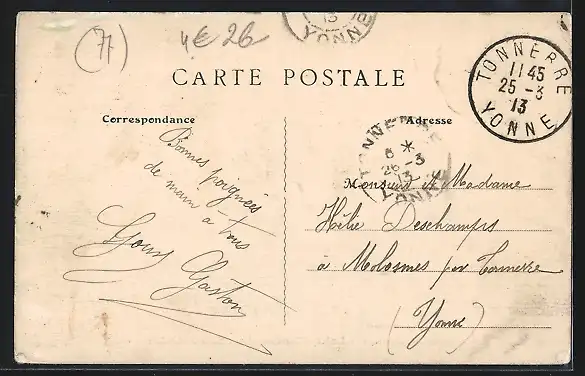 (77)
4€ 26
13
YONNE
CARTE POSTALE
TONNERRE
11 45
25 -3
13
YONNE
Correspondance
Adresse
TONNERRE
8 *
26 -3
13
YONNE
Bonnes poignées
de main à tous
Gaston
Monsieur et Madame
Hélie Deschamps
à Molosmes par Tonnerre
(Yonne)